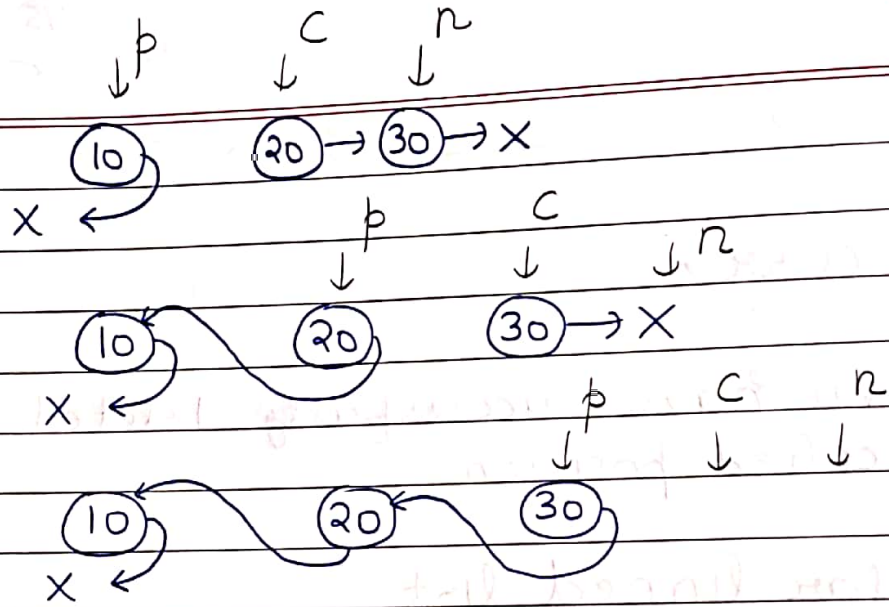 p C n
10 20 → 30 → X
X
p C n
10 20 30 → X
X
p C n
10 20 30
X